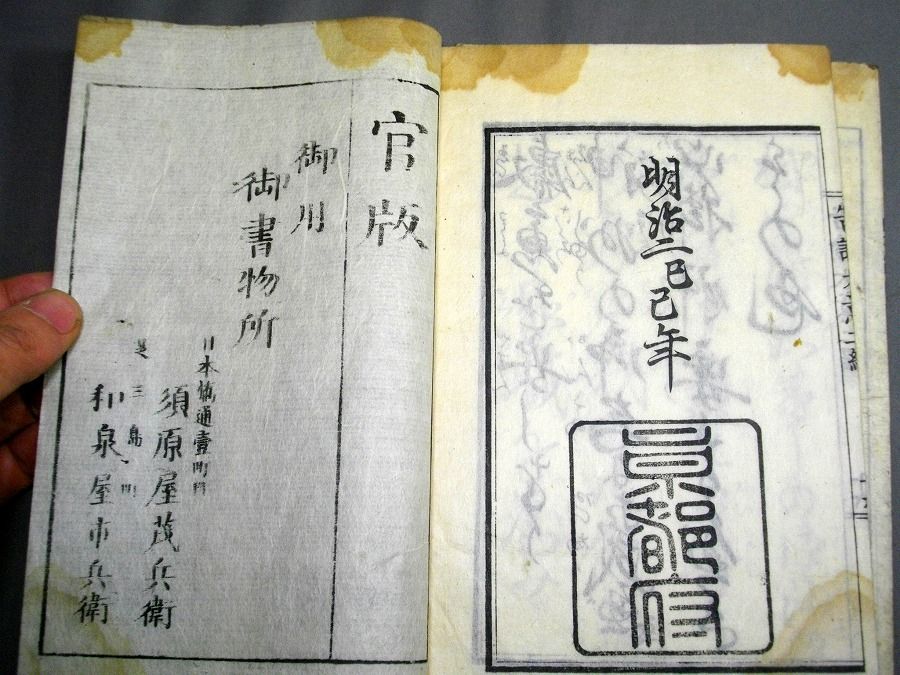 明治二己巳年
京都府
官版
御用
御書物所
日本橋通壹町目
須原屋茂兵衛
芝三島町
和泉屋市兵衛